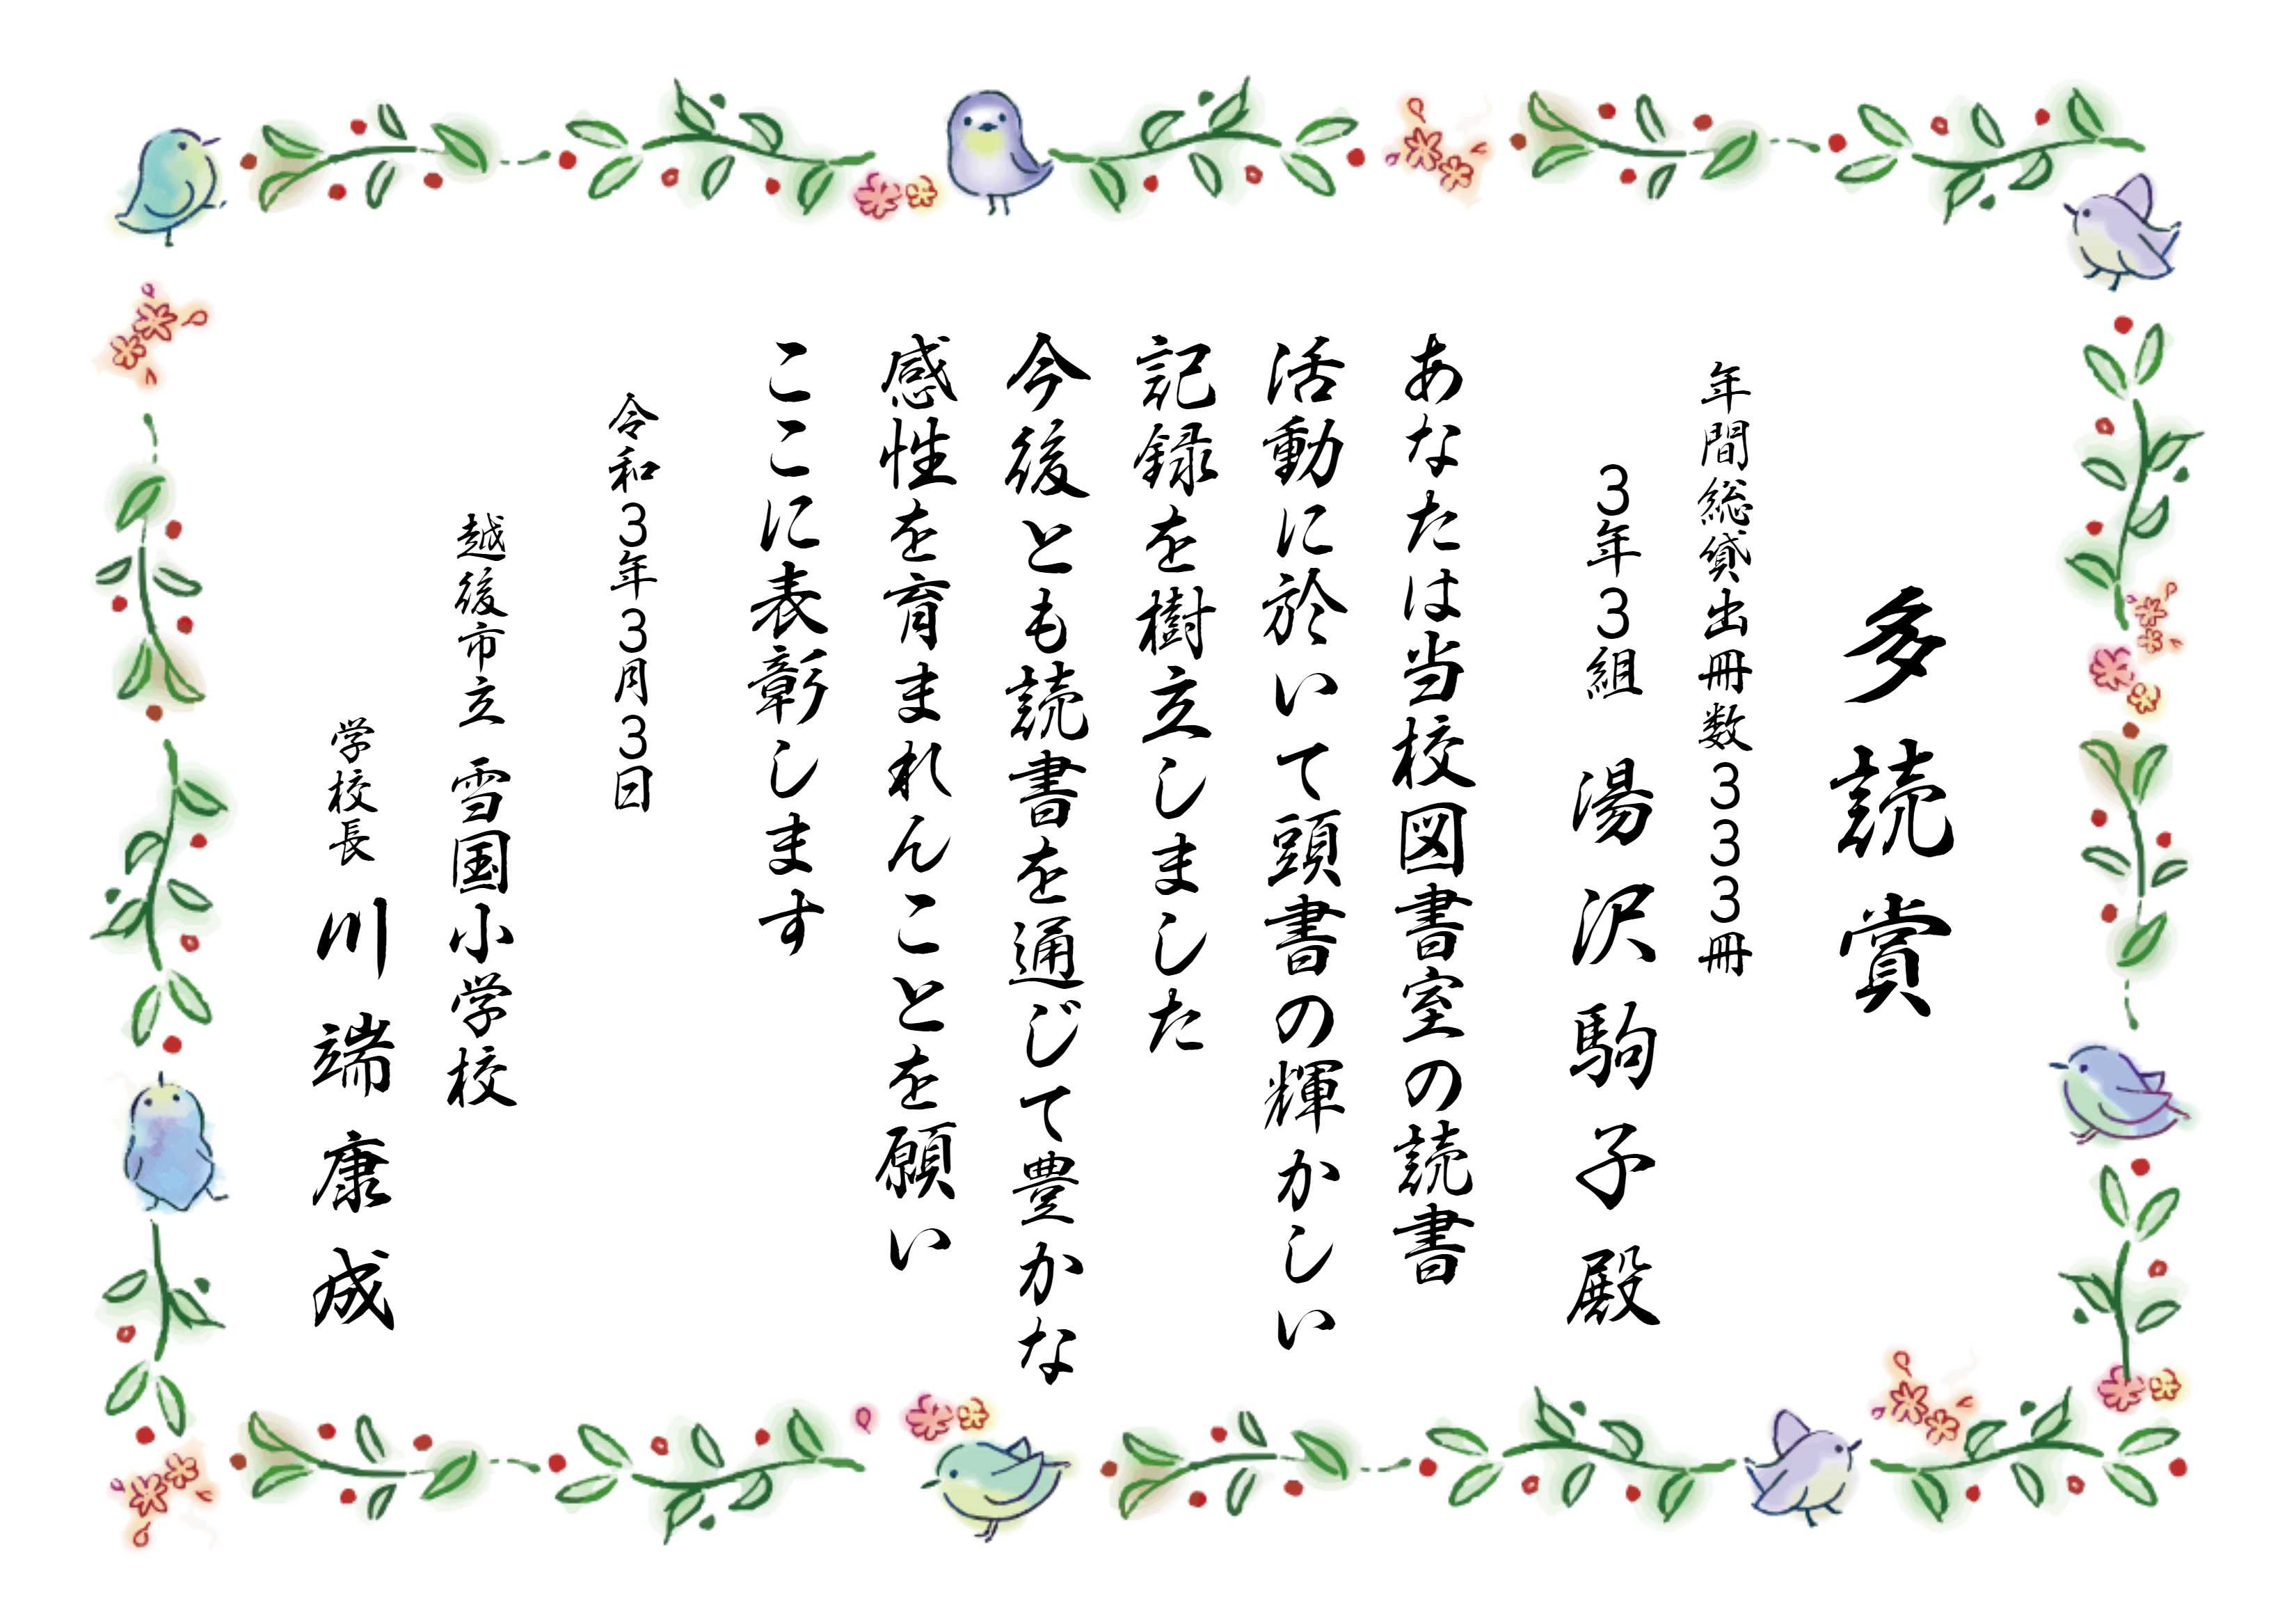 多読賞
年間総貸出冊数３３３冊
３年３組　湯沢駒子殿
あなたは当校図書室の読書
活動に於いて頭書の輝かしい
記録を樹立しました
今後とも読書を通じて豊かな
感性を育まれんことを願い
ここに表彰します
令和３年３月３日
越後市立　雪国小学校
学校長　川端康成